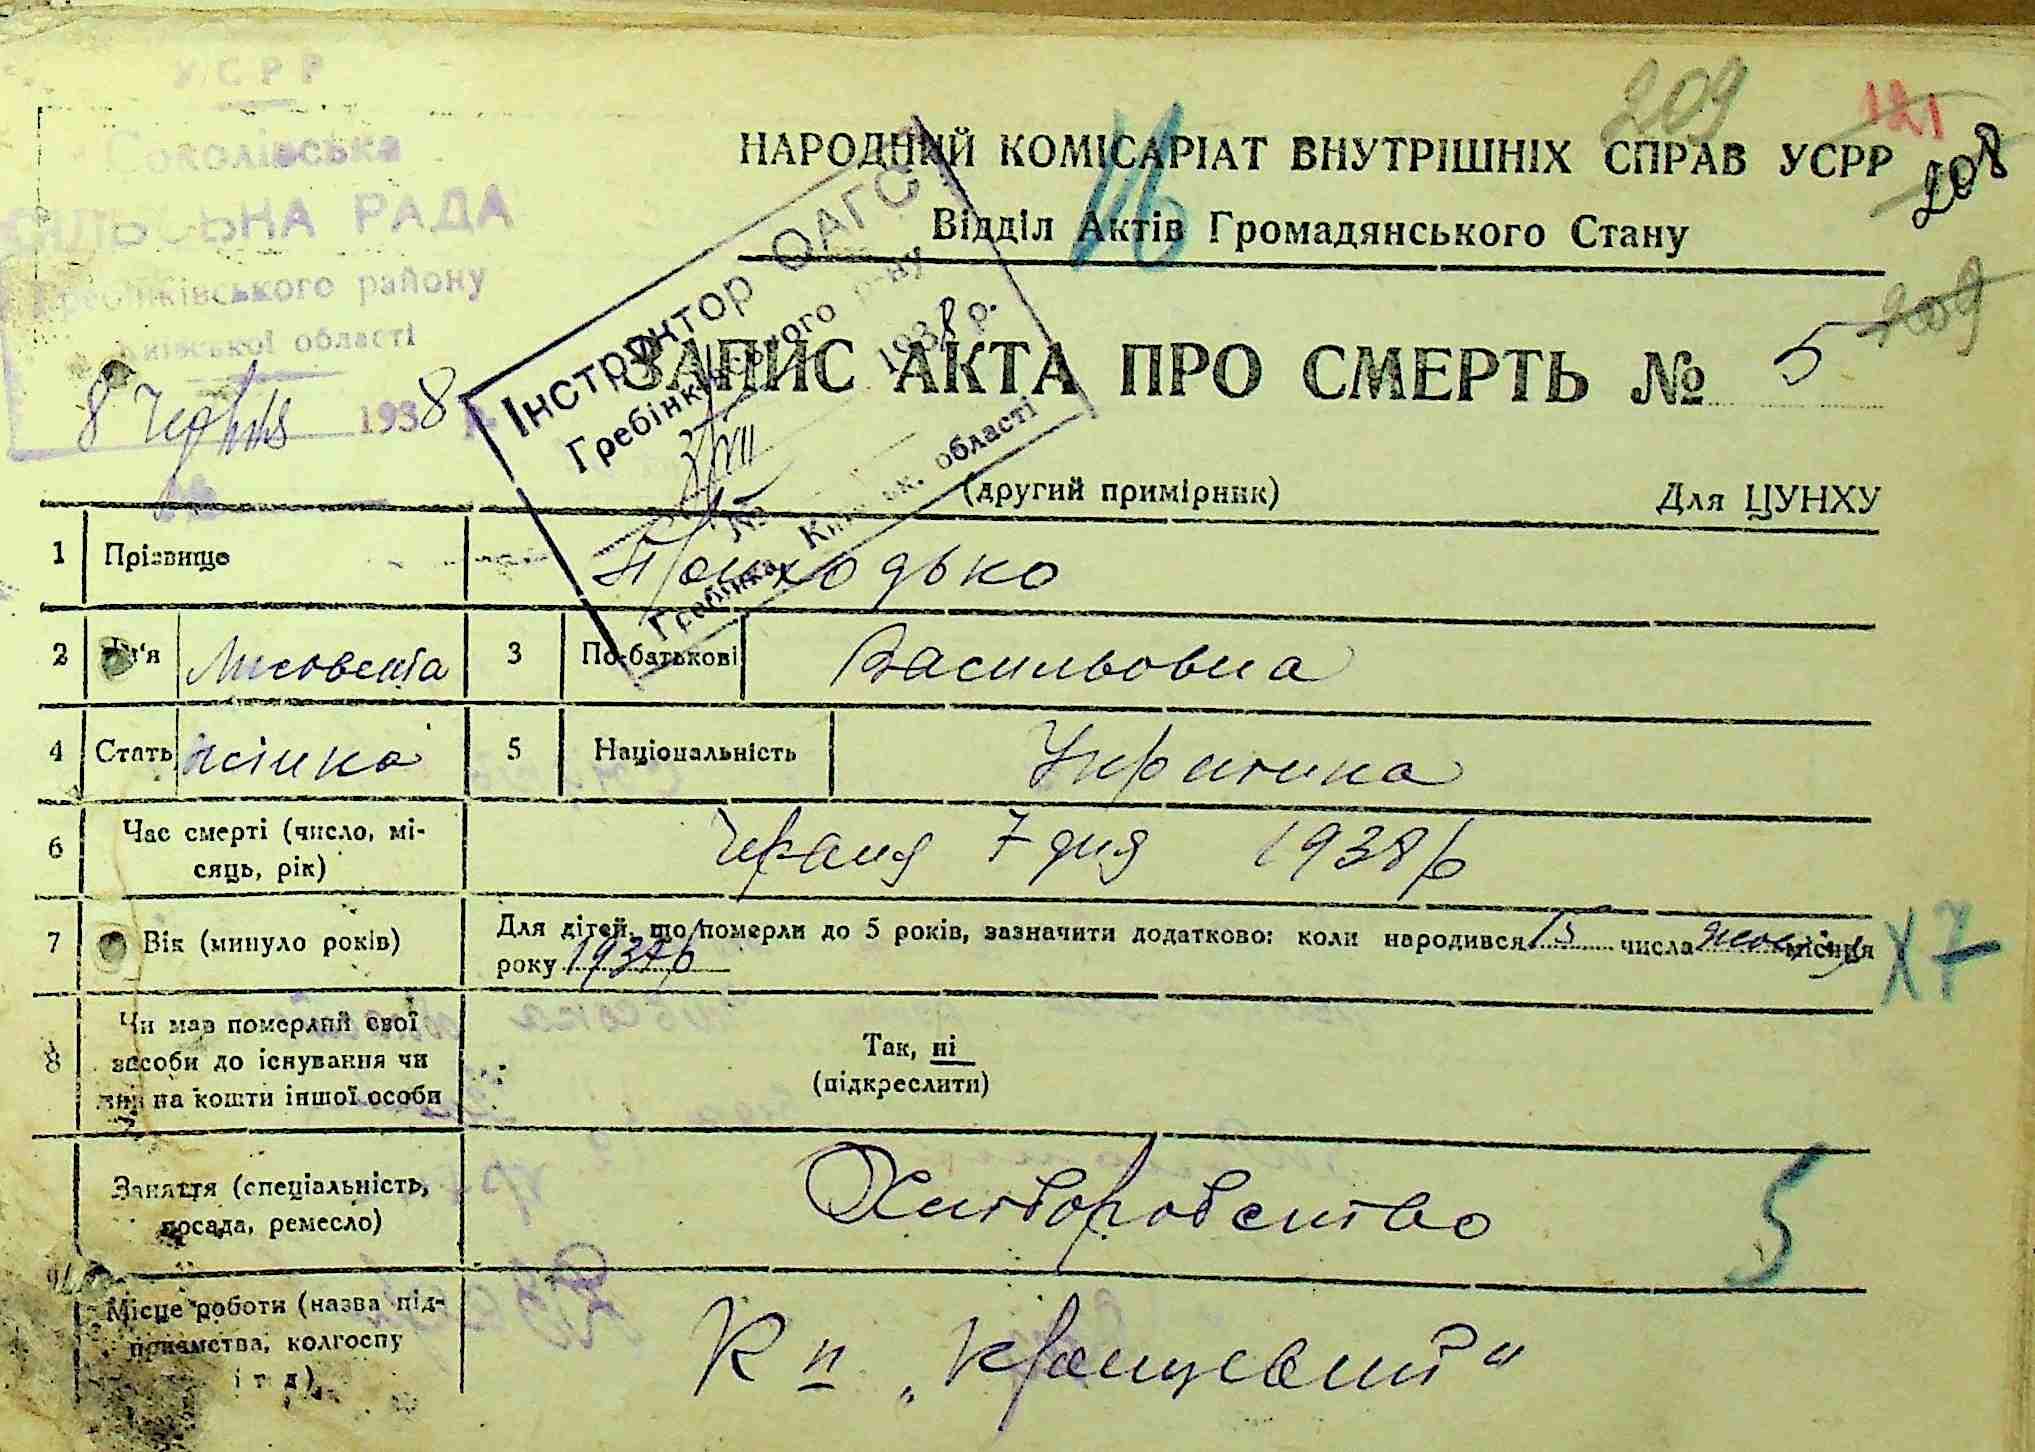 УСРР
Соколівська
СІЛЬСЬКА РАДА
Гребінківського району
Київської області
8 Червня 1938 р.
№
209
121
208
209
16
НАРОДНИЙ КОМІСАРІАТ ВНУТРІШНІХ СПРАВ УСРР
Відділ Актів Громадянського Стану
Інструктор ОАГС
Гребінківського р-ну
1938 р.
№
Гребінка, Київськ. області
ЗАПИС АКТА ПРО СМЕРТЬ № 5
(другий примірник) Для ЦУНХУ
1 Прізвище Приходько
2 Ім'я Лисовента 3 По-батькові Васильовна
4 Стать жінка 5 Національність Украинка
6 Час смерті (число, мі-
сяць, рік) 7 дня 1938 р
7 Вік (минуло років) Для дітей, що померли до 5 років, зазначити додатково: коли народився 15 числа місяця
року 1937 р
Х7
8 Чи мав померлий свої
засоби до існування чи
жив на кошти іншої особи
Так, ні
(підкреслити)
Заняття (спеціальність,
посада, ремесло) Хліборобство
5
Місце роботи (назва під-
приємства, колгоспу
і т. д.)